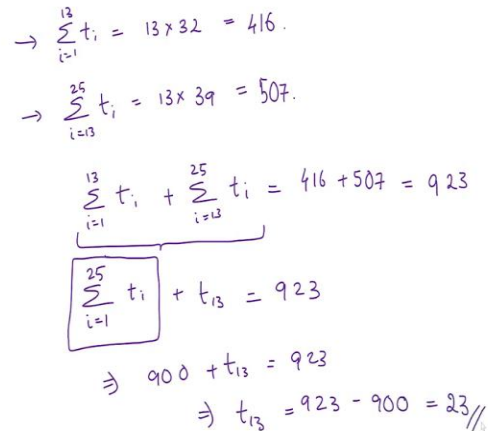 → ∑_{i=1}^{13} t_i = 13 × 32 = 416.
→ ∑_{i=13}^{25} t_i = 13 × 39 = 507.
∑_{i=1}^{13} t_i + ∑_{i=13}^{25} t_i = 416 + 507 = 923
∑_{i=1}^{25} t_i + t_13 = 923
⇒ 900 + t_13 = 923
⇒ t_13 = 923 - 900 = 23 //